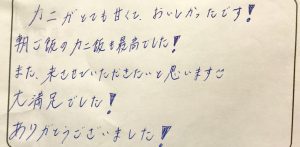 カニがとても甘くて、おいしかったです!
朝ご飯のカニ飯も最高でした!
また、来させていただきたいと思います☺
大満足でした!
ありがとうございました!